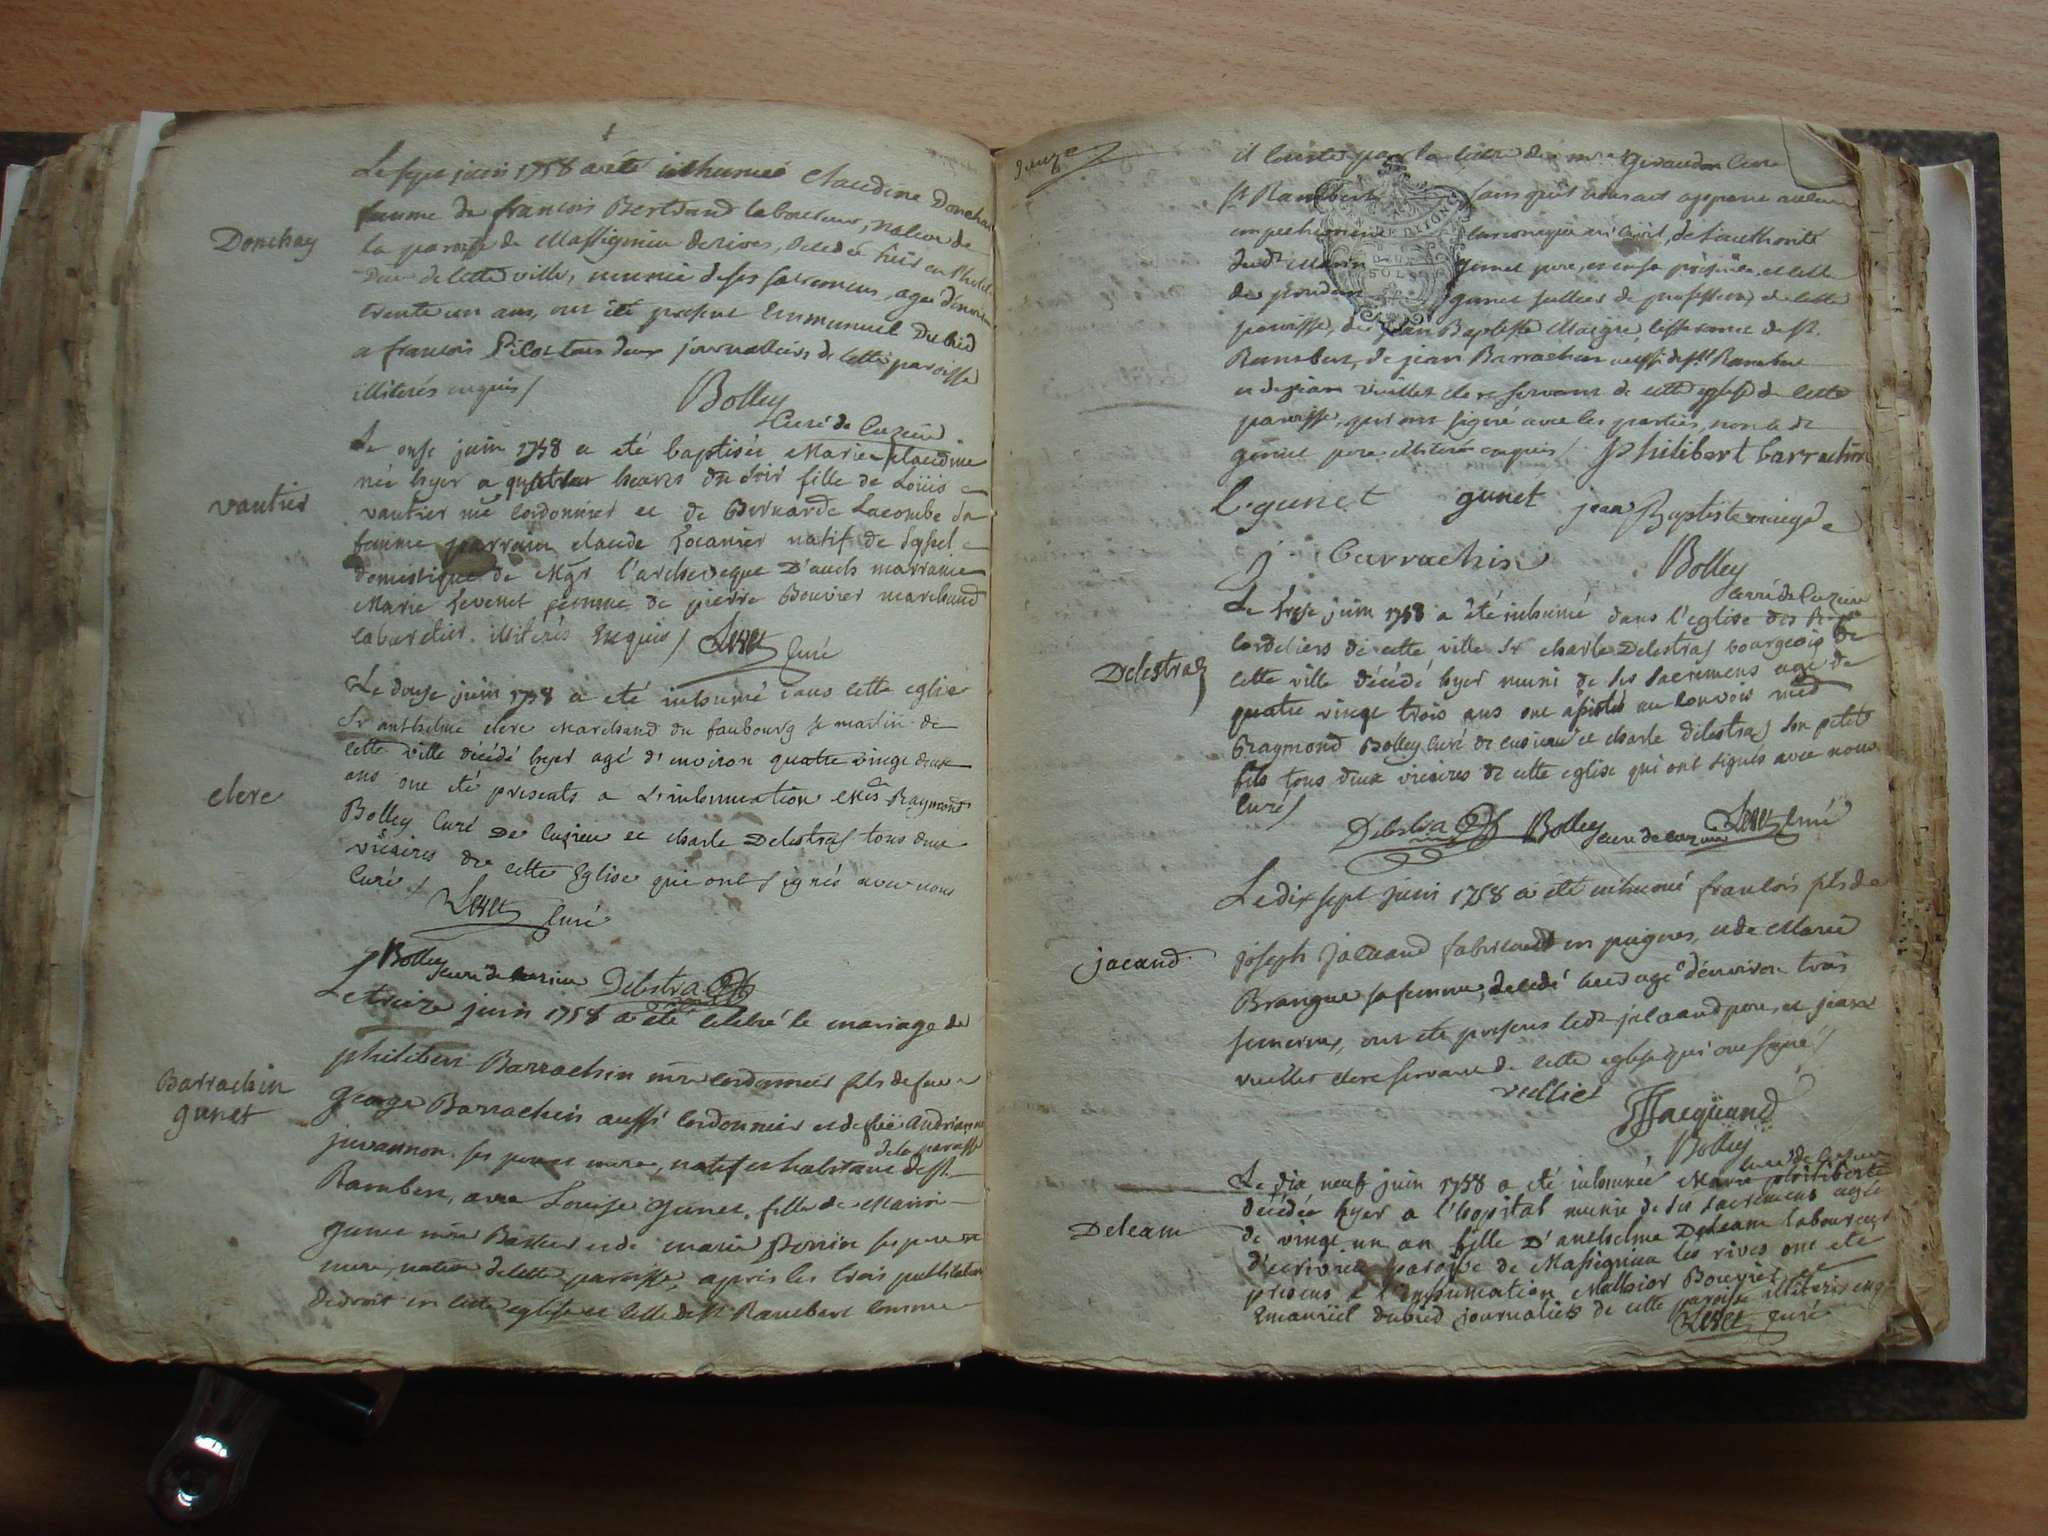 Le sept juin 1758 a été inhumée Claudine Donchay
femme de françois Bertrand laboureur, native de
Donchay
la paroisse de Massignieu de rives, décédée hier en l'hotel
Dieu de cette ville, munie de ses sacremens, agée d'environ
trente un ans, ont été present Emmanuel Dubied
a françois Picot tous deux journalliers de cette paroisse
illiterés enquis /
Bolley
Curé de Cuzieu
Le onse juin 1758 a été baptisée Marie Claudine
née hyer a quatre heures du soir fille de Loüis
vautier
vautier me cordonnier et de Bernarde Lacombe sa
femme parrain claude Locanier natif de Seyssel
domestique de Mgr l'archeveque D'auch marraine
Marie Levenet femme de pierre Bouvier marchand
cabaretier illiterés Enquis / Levet Curé
Le douse juin 1758 a été inhumé dans cette eglise
Sr anthelme clerc marchand du faubourg st martin de
cette ville décédé hyer agé d'environ quatre vingt deux
clerc
ans ont été presents a L'inhumation Mes Raymond
Bolley Curé De Cuzieu et charle Delestraz tous deux
vicaires de cette Eglise qui ont signés avec nous
Curé / Levet Curé
Bolley curé de cuzieu Delestraz
Le treize juin 1758 a été celebré le mariage de
philibert Barrachin me cordonnier fils de feu
Barrachin
gunet
George Barrachin aussi cordonnier et de feüe Andrianne
juvannon ses pere et mere, natif et habitant de la paroisse de st
Rambert, avec Louise gunet, fille de Marin
gunet me Bastier et de marie Perrin ses pere et
mere, native de cette paroisse, après les trois publications
de droit en cette eglise et celle de st Rambert comme
deuze
il conste par la lettre de mre Giraudon Curé
st Rambert sans qu'il nous ait apparu aucun
empechement canonique ni civil, de l'authorité
du dt Marin gunet pere, et en sa presence, et celle
de gunet sellier de profession, de cette
paroisse, de jean Baptiste Maigre de st.
Rambert, de jean Barrachin aussi de st Rambert
et de jean vuillet clerc servant de cette eglise de cette
paroisse, qui ont signé avec les parties, non le dt
gunet pere illiteré enquis / philibert barrachin
l. gunet gunet jean Baptiste maigre
j. barrachin Bolley
curé de Cuzieu
Le treze juin 1758 a été inhumé dans l'eglise des R. p.
cordeliers de cette ville Sr charle Delestraz bourgeois de
Delestraz
cette ville décédé hyer muni de ses sacremens agé de
quatre vingt trois ans ont assistés au convois mes
Raymond Bolley Curé de cusieu et charle delestraz son petit
fils tous deux vicaires de cette eglise qui ont signés avec nous
Curé /
Delestraz Bolley curé de cuzieu Levet Curé
Le dix sept juin 1758 a été inhumé francois fils de
jacand
joseph jacuand fabricant en peignes, et de Marie
Brangue sa femme, decedé hier agé d'environ trois
semaines, ont été presens ledt jacuand pere, et jean
vuillet clerc servant de cette eglise qui ont signé /
vulliet
JJacquand
Bolley
curé de cuzieu
Le dix neuf juin 1758 a été inhumée Marie philiberte
décédée hyer a l'hopital munie de ses sacremens agée
Deleam
de vingt un an fille D'anthelme Deleam laboureur
d'ecrivieu paroisse de Massignieu les rives ont été
presens a l'inhumation Melchior Bouvier et
Emanüel dubied journaliers de cette paroisse illiterés enq.
Levet Curé